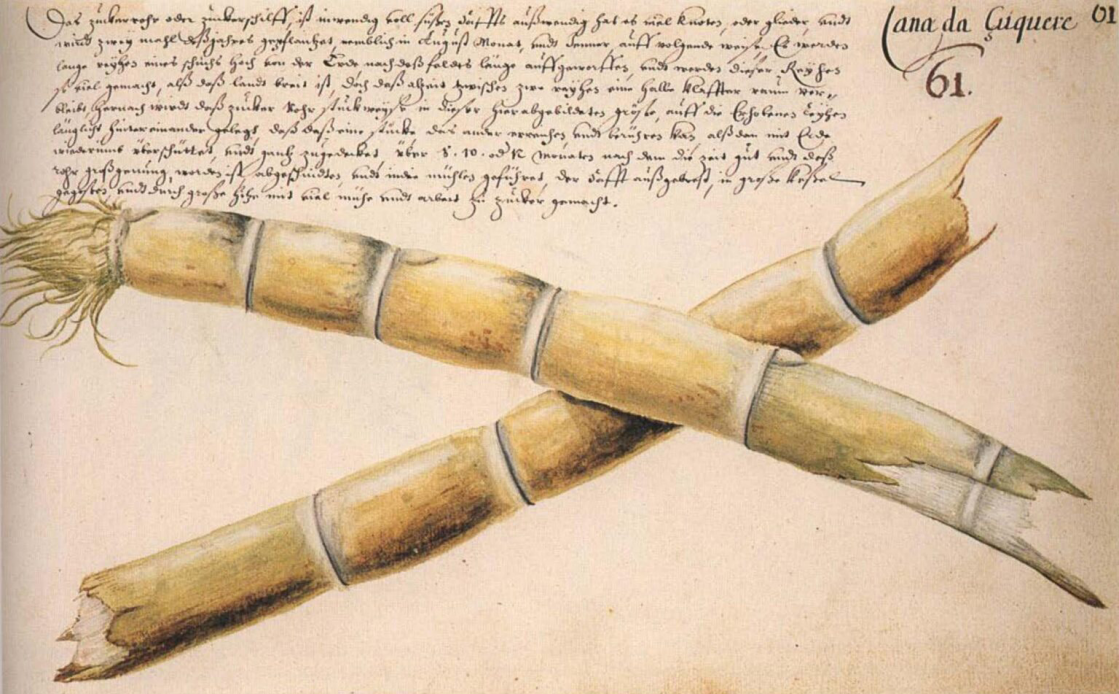 Cana da Çuquere
61.
61
Das zuckerrohr oder zuckerschilff, ist inwendig voll süßes saffts außwendig hat es viel knoten, oder glieder undt
wirdt zwey mahl deß Jahres gepflantzet, nemblich in August Monat, undt Jenner, auff volgende weise. Es werden
lange reyhen eines schuchs hoch von der Erde nach deß feldes länge auffgeworffen, undt werden dieser Reyhen
so viel gemacht, alß daß landt breit ist, doch daß alzeit zwischen zwo reyhen eine halbe klaffter raum ver„
bleibt, hernach wirdt daß zucker Rohr stückweyse in dieser hierabgebildeten größe, auff die Erhobenen reyhen
länglicht hintereinander gelegt, daß daß eine stücke das ander erreichen undt berühren kan, alßdan mit Erde
wiederumb überschüttet, undt gantz zugedecket, über 8. 10. od. 12 Monaten nach dem die zeit gut undt daß
rohr groß genung worden ist, abgeschnidten, undt indie mühlen geführet, der Safft außgepreßt, in große Keßel
gegoßen, undt durch große hitze mit viel mühe undt arbeit zu zucker gemacht.